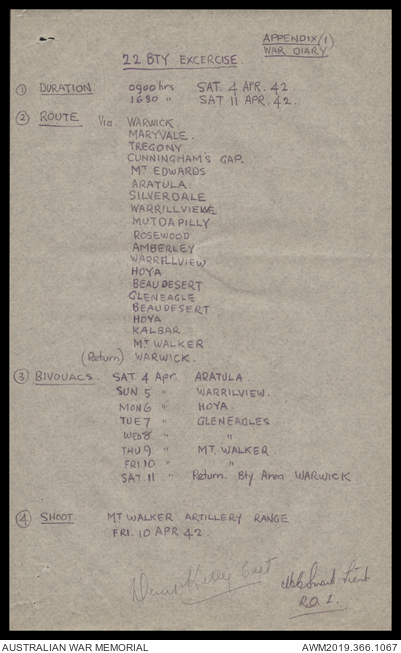 APPENDIX (1)
WAR DIARY
22 BTY EXCERCISE.
① DURATION 0900 hrs SAT. 4 APR. 42.
1630 " SAT 11 APR. 42.
② ROUTE Via. WARWICK.
MARYVALE.
TREGONY
CUNNINGHAM'S GAP.
MT EDWARDS
ARATULA
SILVERDALE
WARRILLVIEWE
MUTDAPILLY
ROSEWOOD
AMBERLEY
WARRILLVIEW
HOYA
BEAUDESERT
GLENEAGLE
BEAUDESERT.
HOYA
KALBAR
MT WALKER
(Return) WARWICK.
③ BIVOUACS. SAT 4 Apr. ARATULA.
SUN 5 " WARRILVIEW.
MON 6 " HOYA
TUE 7 " GLENEAGLES
WED 8 " "
THU 9 " MT. WALKER
FRI 10 " "
SAT. 11 " Return Bty Area WARWICK.
④ SHOOT. MT WALKER ARTILLERY RANGE
FRI. 10 APR 42.
Capt Lieut
R.O. 1.
AUSTRALIAN WAR MEMORIAL AWM2019.366.1067